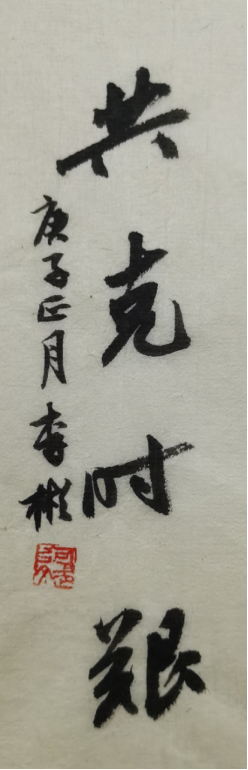 共克时艰
庚子正月李彬